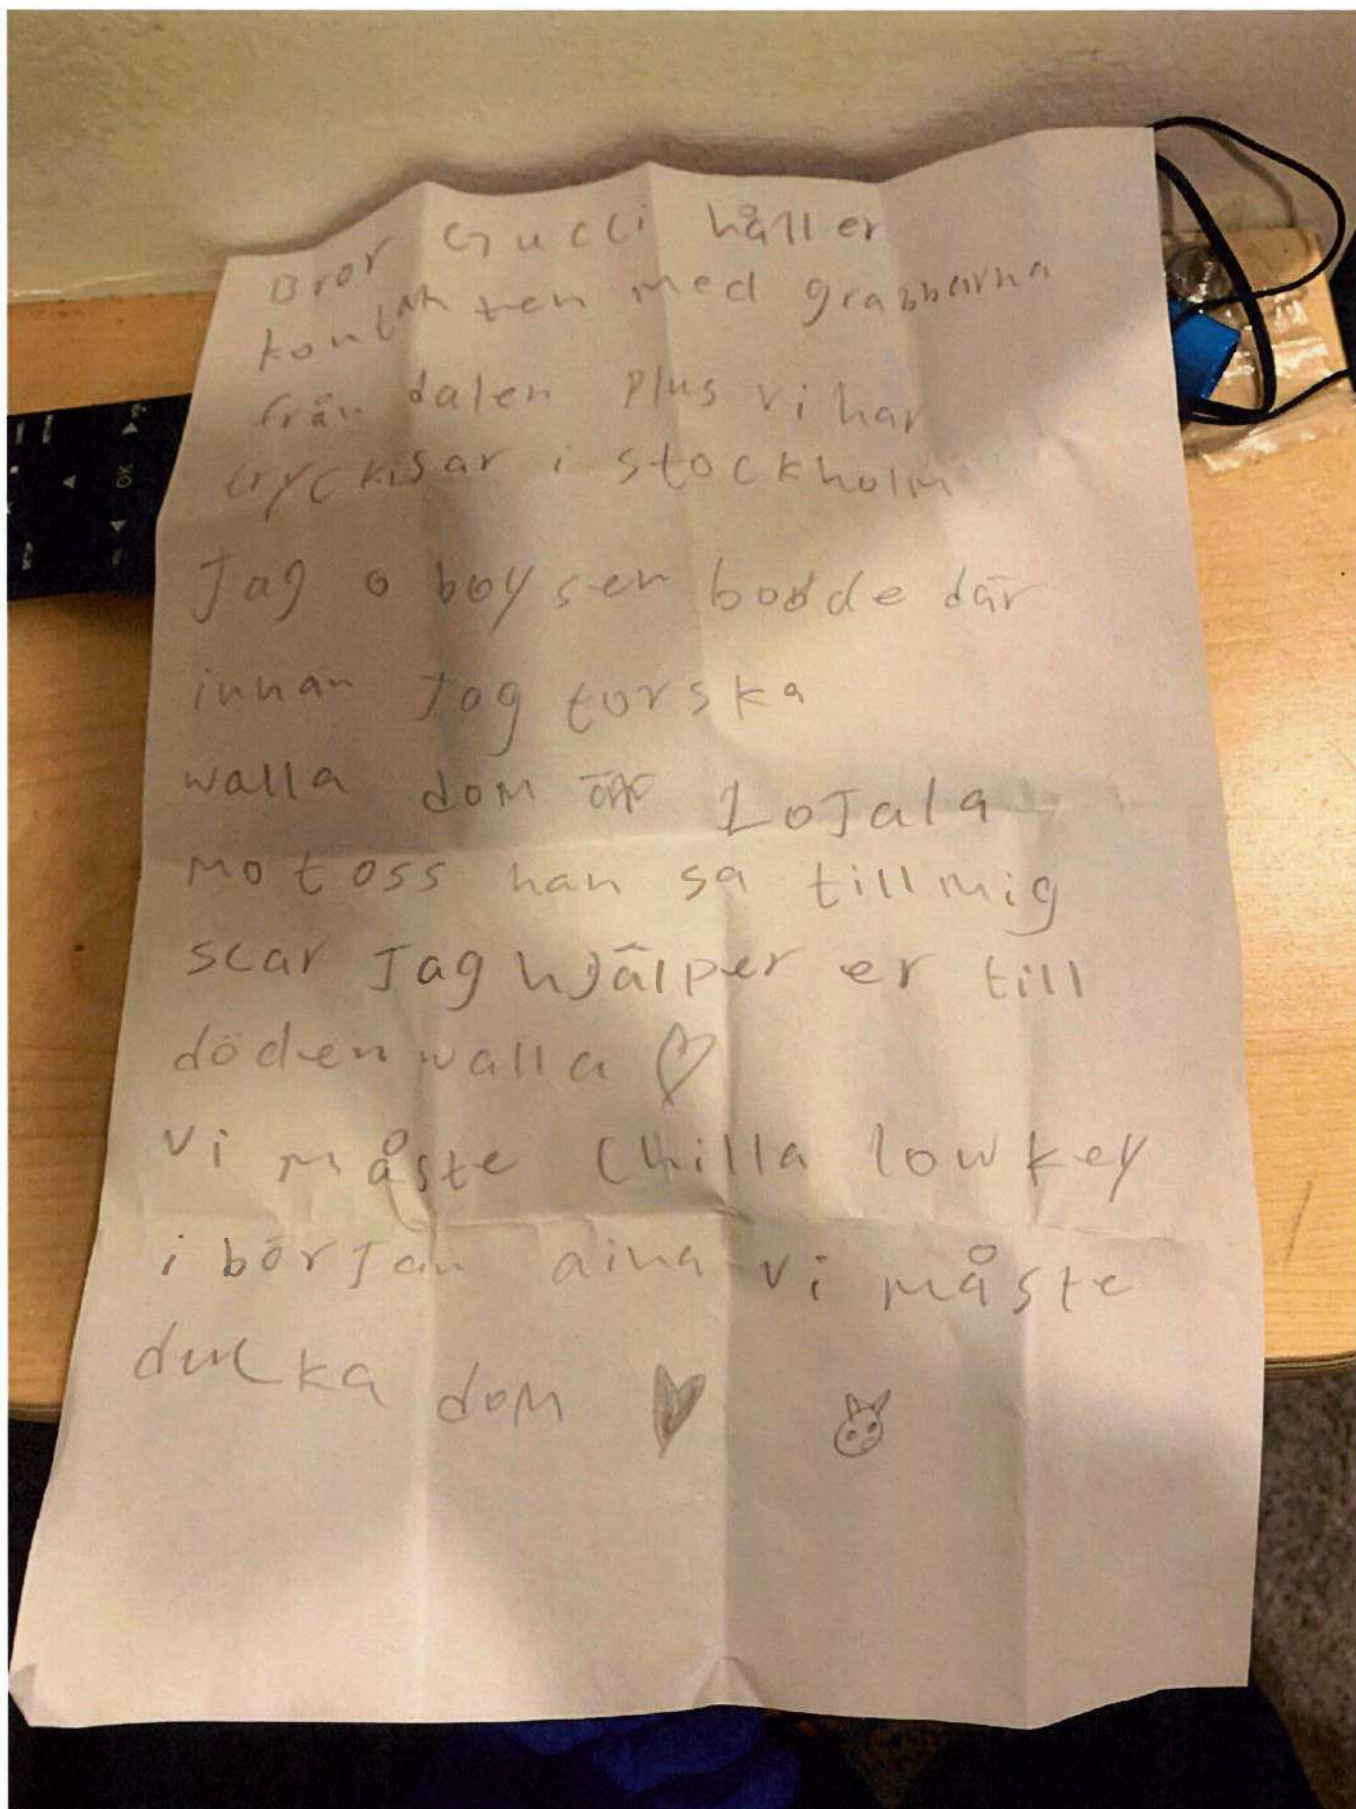 Bror Gucci håller
kontakten med grabbarna
från dalen Plus vi har
tryckisar i stockholm
Jag o boysen bodde där
innan Jag torska
walla dom är Lojala
mot oss han sa till mig
scar Jag hJälper er till
döden walla ♡
vi måste Chilla lowkey
i börJan aina vi måste
ducka dom ♥
OK